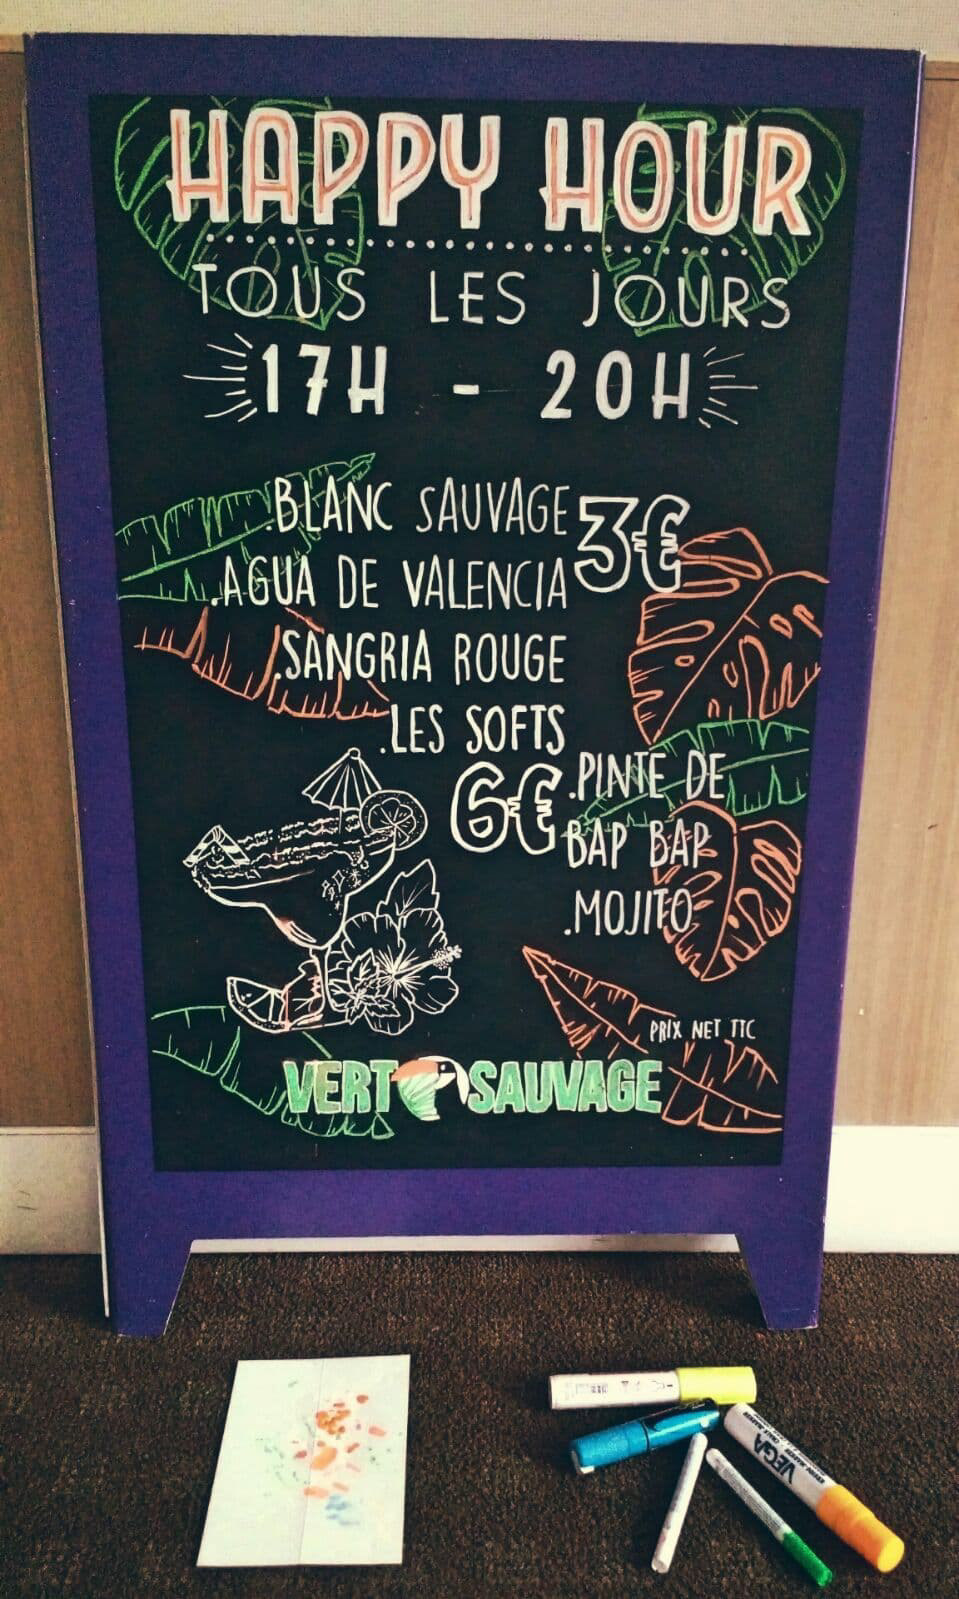 HAPPY HOUR
TOUS LES JOURS
17H - 20H
.BLANC SAUVAGE
3€
.AGUA DE VALENCIA
.SANGRIA ROUGE
.LES SOFTS
6€
.PINTE DE
BAP BAP
.MOJITO
PRIX NET TTC
VERT SAUVAGE
VEGA